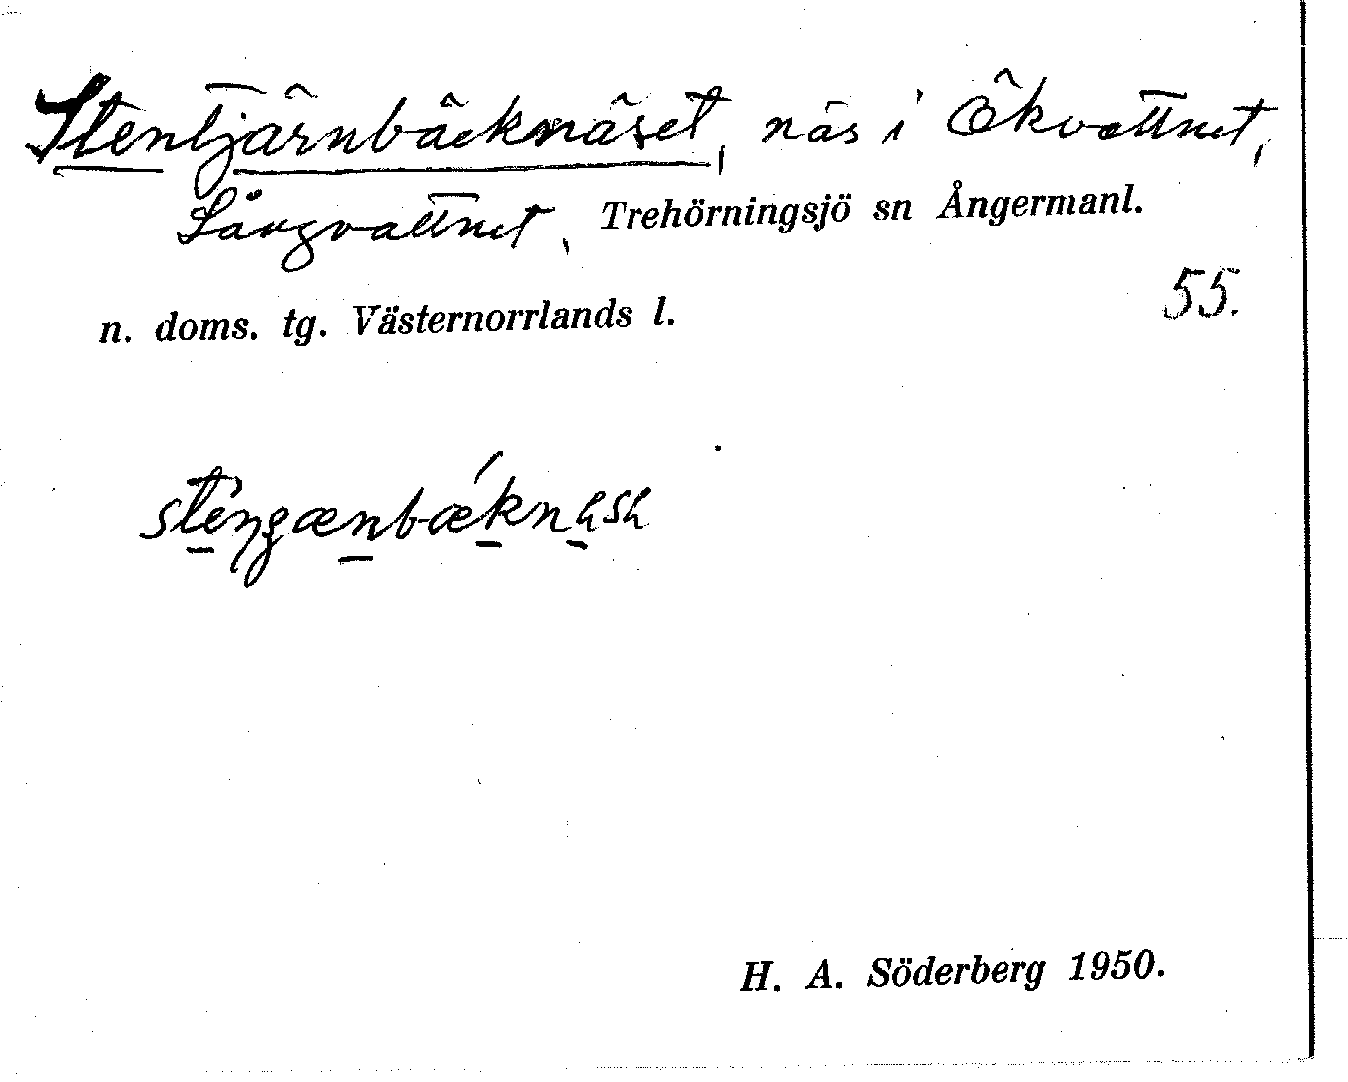 Stentjärnbäcknäset, näs i Ökvattnet,
Långvattnet, Trehörningsjö sn Ångermanl.
55.
n. doms. tg. Västernorrlands l.
H. A. Söderberg 1950.